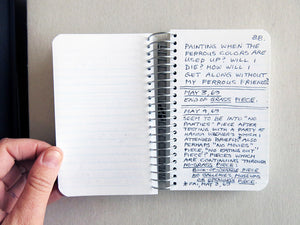 88.
PAINTING WHEN THE
FERROUS COLORS ARE
USED UP? WILL I
DIE? HOW WILL I
GET ALONG WITHOUT
MY FERROUS FRIENDS?
MAY 3, 69
END OF GRASS PIECE.
MAY 4, 69
SEEM TO BE INTO "NO
PARTIES" PIECE AFTER
TESTING WITH A PARTY AT
WHICH I
ATTENDED. ALSO
PERHAPS "NO MOVIES"
PIECE, "NO EATING OUT"
PIECE? PIECES WHICH
ARE CONTINUING THROUGH
NO-GRASS PIECE:
NO GALLERIES, MUSEUMS
PIECE
FRI, MAY 2, 69